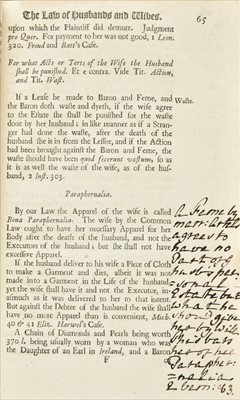 The Law of Husbands and Wives. 65
upon which the Plaintiff did demurr. Judgment
pro Quer. For payment to her was not good, 2 Leon.
320. Froud and Batt's Case.
For what Acts or Torts of the Wife the Husband
shall be punished. Et e contra. Vide Tit. Action,
and Tit. Wast.
If a Lease be made to Baron and Feme, and
Waste.
the Baron doth waste and dyeth, if the wife agree
to the Estate she shall be punished for the waste
done by her husband; in like manner as if a Stran-
ger had done the waste, after the death of the
husband she it is in from the Lessor, and if the Action
had been brought against the Baron and Feme, the
waste should have been quod fecerunt wastum; so as
it is as well the waste of the wife, as of the hus-
band, 2 Inst. 303.
Paraphernalia.
By our Law the Apparel of the wife is called
Bona Paraphernalia. The wife by the Common
Law ought to have her necessary Apparel for her
Body after the death of the husband, and not the
Executors of the husband; but she shall not have
excessive Apparel.
If the husband deliver to his wife a Piece of Cloth
to make a Garment and dies, albeit it was not
made into a Garment in the Life of the husband
yet the wife shall have it and not the Executor, in-
asmuch as it was delivered to her to that intent.
But against the Debtee of the husband the wife shall
have no more Apparel than is convenient, Mich.
40 & 41 Eliz. Harwel's Case.
A Chain of Diamonds and Pearls being worth
370 l. being usually worn by a woman who was
the Daughter of an Earl in Ireland, and a Baron
F
A Feme by
marriage
agrees to
have no
Part of
husb's per-
sonal
Estate but
what he
shou'd give
her by will
She bars
her of her
Parapher-
nalia
2 Vern: 83.